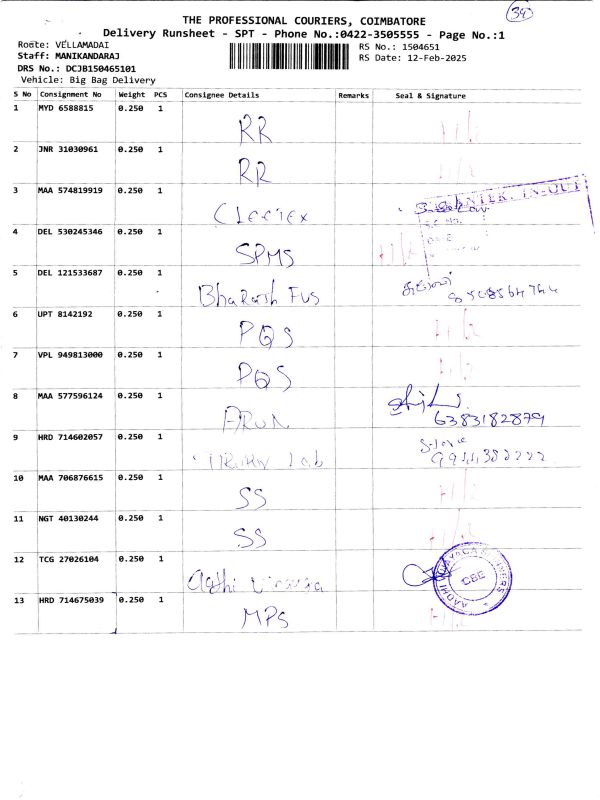 39
THE PROFESSIONAL COURIERS, COIMBATORE
Delivery Runsheet - SPT - Phone No.:0422-3505555 - Page No.:1
Route: VELLAMADAI
Staff: MANIKANDARAJ
DRS No.: DCJB150465101
Vehicle: Big Bag Delivery
RS No.: 1504651
RS Date: 12-Feb-2025
S No Consignment No Weight PCS Consignee Details Remarks Seal & Signature
1 MYD 6588815 0.250 1 RR 11/2
2 JNR 31030961 0.250 1 RR 11/2
3 MAA 574819919 0.250 1
4 DEL 530245346 0.250 1 SPMS 11/2
5 DEL 121533687 0.250 1 Bharash Fus
6 UPT 8142192 0.250 1 PQS 11/2
7 VPL 949813000 0.250 1 PQS 11/2
8 MAA 577596124 0.250 1 ARUN 6383182879
9 HRD 714602057 0.250 1 Lab
10 MAA 706876615 0.250 1 SS 11/2
11 NGT 40130244 0.250 1 SS 11/2
12 TCG 27026104 0.250 1 CBE
13 HRD 714675039 0.250 1 MPS 11/2